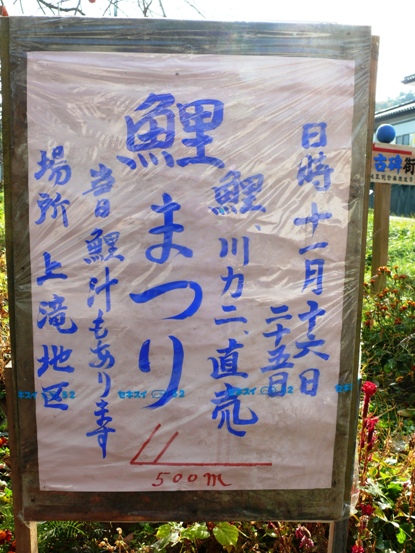 日時 十一月十六日
二十五日
鯉、川カニ、直売
鯉まつり
当日 鯉汁もあります
場所 上滝地区
500m
セキスイ
セキスイ